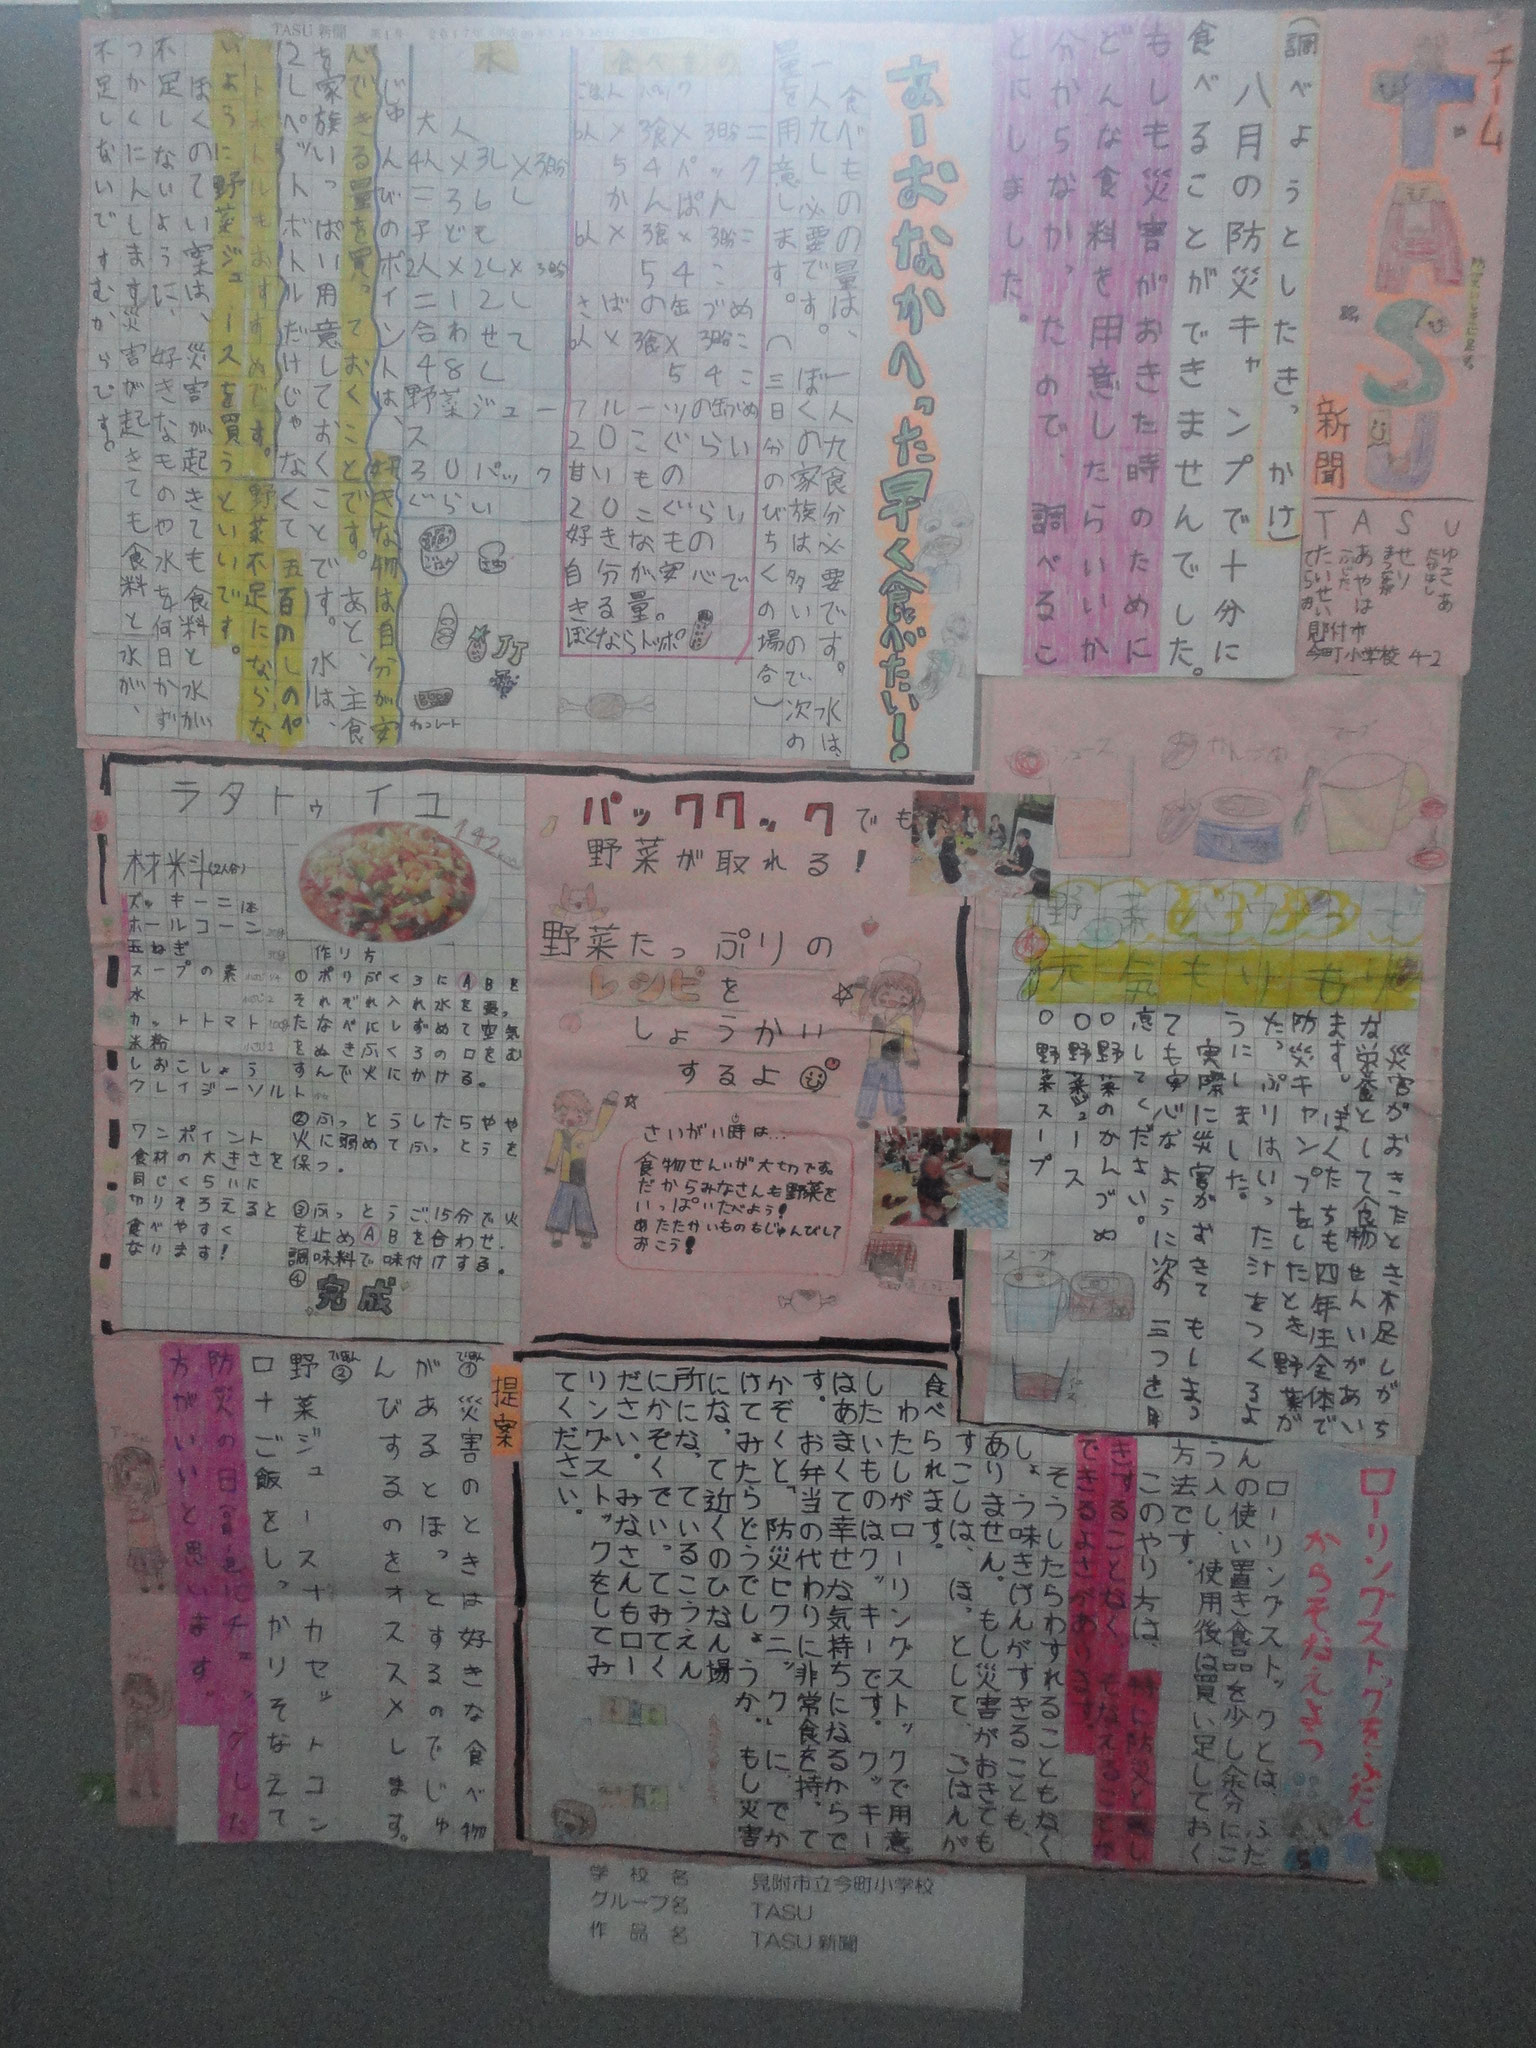 TASU新聞 第1号
チーム
TASU
新聞
TASU
見附市
今町小学校 4-2
(調べようとしたきっかけ)
八月の防災キャンプで十分に
食べることができませんでした。
もしも災害がおきた時のために
どんな食料を用意したらいいか
分からなかったので、調べるこ
とにしました。
あーおなかへった早く食べたい!
食べものの量は、一人九食分必要です。水は、
一人九し必要です。ぼくの家族は多いので次の
量を用意します。(三日分のびちくの場合)
食べもの
ごはんパック
6人×3食×3日分=
54パック
かんぱん
6人×3食×3日分=
54こ
さばの缶づめ
6人×3食×3日分=
54こ
フルーツの缶づめ
20こぐらい
甘いもの
20こぐらい
好きなもの
自分が安心で
きる量。
ぼくならトッポ
水
大人
4人×3L×3日分
=36L
子ども
2人×2L×3日分
=12L
合わせて
48L
野菜ジュー
ス
30パック
ぐらい
チョコレート
じゅんびのポイントは、好きな物は自分が安
んできる量を買っておくことです。あと、主食
を家族いっぱい用意しておくことです。水は、
2Lペットボトルだけじゃなくて五百のしのペ
ットボトルもおすすめです。野菜不足にならな
いように野菜ジュースを買うといいです。
ぼくのてい案は、災害が起きても食料と水が
不足しないように、好きなものや水を何日かず
つかくにんします災害が起きても食料と水が、
不足しないですむからです。
ジュース
かんづめ
スープ
野菜パワーで
元気もりもり
災害がおきたとき不足しがち
な栄養として食物せんいがあい
ます。ぼくたちも四年生全体で
防災キャンプをしたとき野菜が
たっぷりはいった汁をつくるよ
うにしました。
実際に災害がおきてもしまっ
ても安心なように次の三つを用
意してください。
○野菜のかんづめ
○野菜ジュース
○野菜スープ
スープ
パッククックでも
野菜が取れる!
野菜たっぷりの
レシピを
しょうかい
するよ
さいがい時は…
食物せんいが大切です。
だからみなさんも野菜を
いっぱいたべよう!
あたたかいものもじゅんびして
おこう!
ラタトゥイユ
材料(2人分)
ズッキーニ 1本
ホールコーン
玉ねぎ
スープの素
水
カットトマト
米粉
しおこしょう
クレイジーソルト
ワンポイント
食材の大きさを
同じくらいに
切りそろえると
食べやすく
なります!
作り方
①ポリぶくろにABを
それぞれ入れ水を張っ
たなべにしずめて空気
をぬきふくろの口をむ
すんで火にかける。
②ふっとうしたらやや
火に弱めてふっとうを
保つ。
③ふっとうご、15分で火
を止めAB合わせ、
調味料で味付けする。
④
完成
ローリングストックをふだん
からそなえよう
ローリングストックとは、ふだ
んの使い置き食品を少し余分にこ
う入し、使用後は買い足しておく
方法です。
このやり方は、特に防災と意し
きすることなく、そなえることが
できるよさがあります。
そうしたらわすれることもなく
しょう味きげんがすぎることも、
ありません。もし災害がおきても
すこしは、ほっとして、ごはんが
食べられます。
わたしがローリングストックで用意
したいものはクッキーです。クッキー
はあまくて幸せな気持ちになるからで
す。お弁当の代わりに非常食を持って
かぞくと「防災ピクニック」に、でか
けてみたらどうでしょうか。もし災害
になって近くのひなん場
所になっているこうえん
にかぞくでいってみてく
ださい。みなさんもロー
リングストックをしてみ
てください。
提案
ていあん①災害のときは好きな食べ物
があるとほっとするのでじゅ
んびするのをオススメします。
ていあん②
野菜ジュースナカセットコン
ロ十ご飯をしっかりそなえて
防災の日(食)にチェックした
方がいいと思います。
学校名 見附市立今町小学校
グループ名 TASU
作品名 TASU新聞